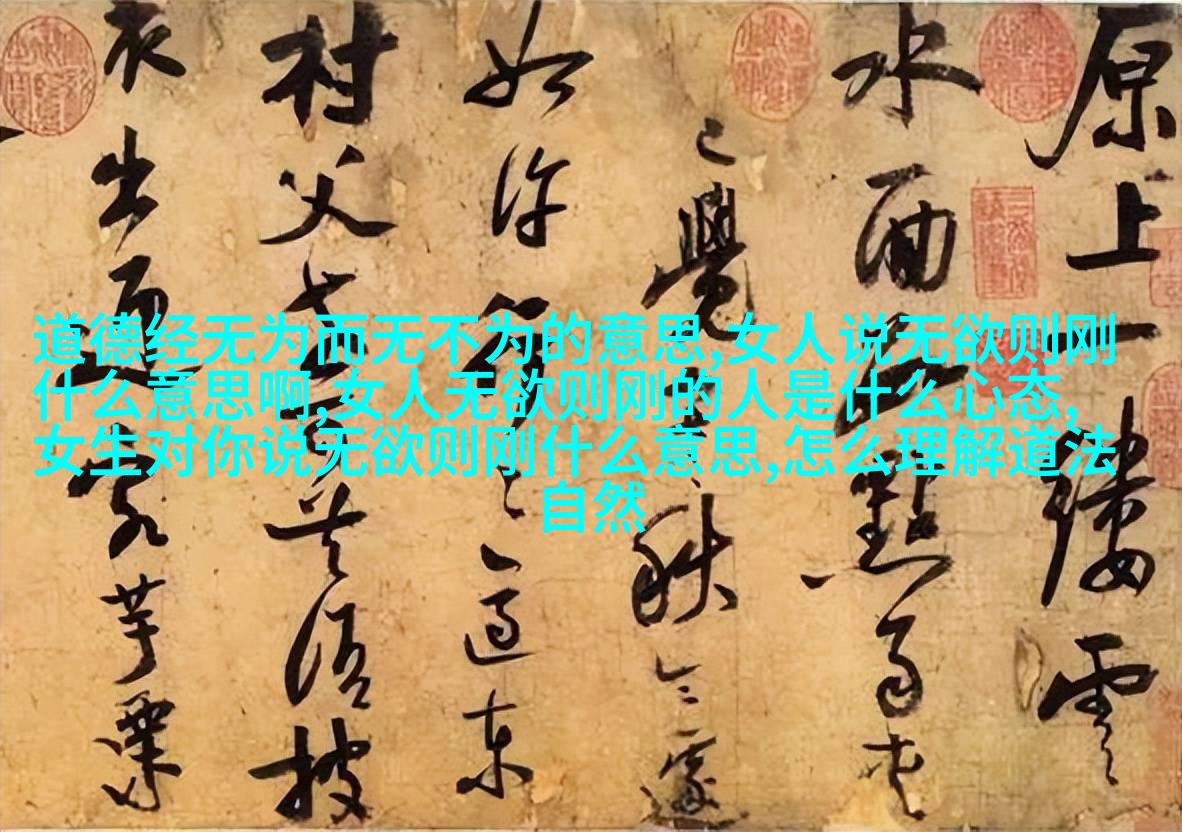 道德经无为而无不为的意思,女人说无欲则刚
什么意思啊,女人无欲则刚的人是什么心态,
女生对你说无欲则刚什么意思,怎么理解道法
自然
原上一縷雲
水面點雨
已覺秋
如許過東
村父老莫須披
衣出家芋栗